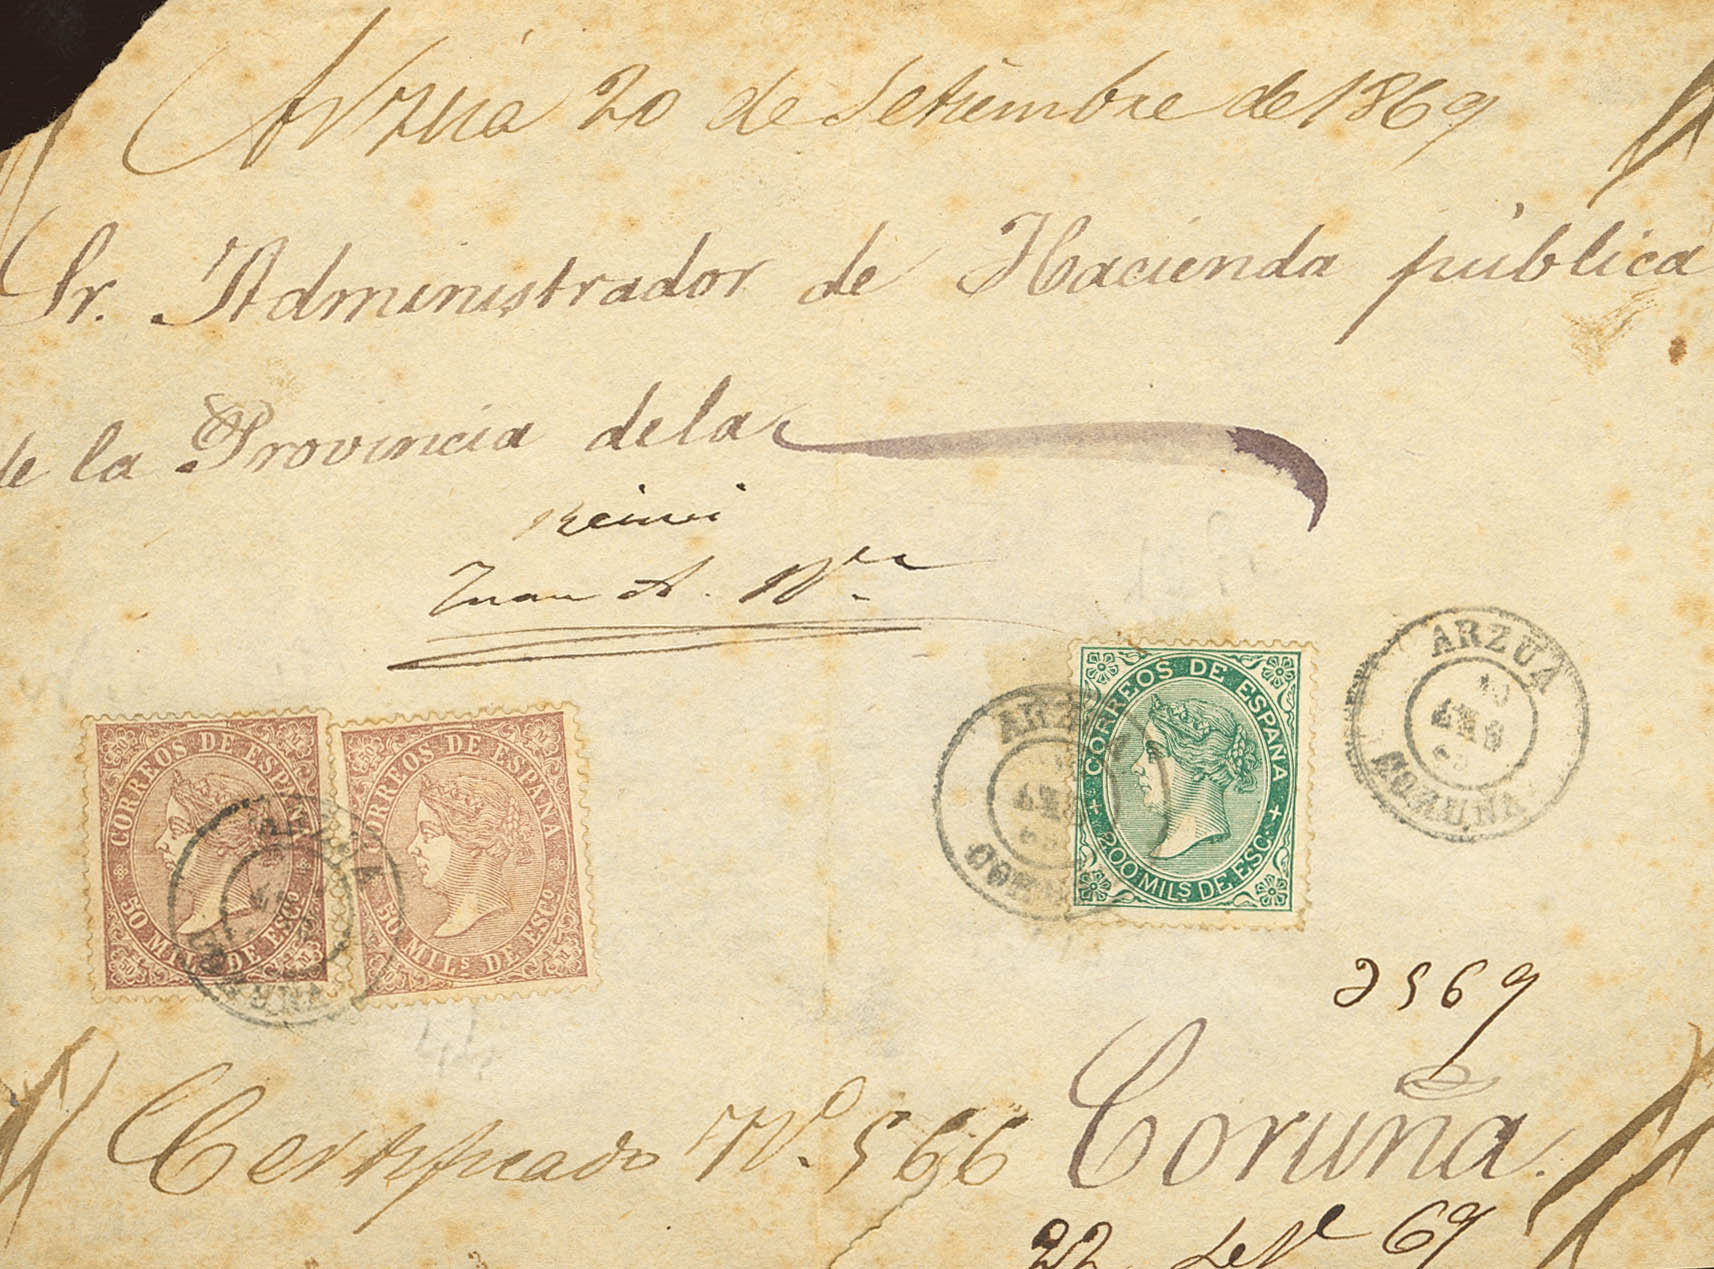 Arzúa 20 de Setiembre de 1869
Sr. Administrador de Hacienda pública
de la Provincia de la
Juan A.
CORREOS DE ESPAÑA
50 MILs DE ESCO
CORREOS DE ESPAÑA
50 MILs DE ESCO
CORREOS DE ESPAÑA
200 MILS DE ESC.
ARZUA
ARZUA
2569
Certificado Nº. 566
Coruña.
22 Se 69